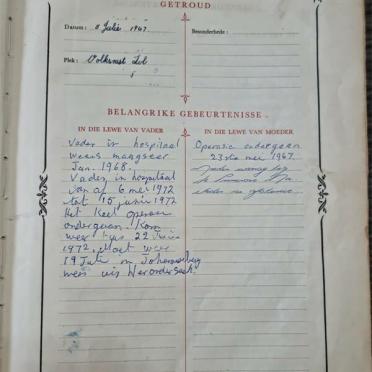 GETROUD
Datum: 8 Julie 1967
Besonderhede:
Plek: Volksrust
BELANGRIKE GEBEURTENISSE
IN DIE LEWE VAN VADER
Vader in hospitaal
weens maagseer
Jan. 1968.
Vader in hospitaal
van af 6 mei 1972
tot 15 junie 1972
Het keel operasie
ondergaan. Kom
weer tuis 22 Junie
1972. Moet weer
19 Julie in Johannesburg
wees vir Her ondersoek.
IN DIE LEWE VAN MOEDER
Operasie ondergaan
23ste mei 1967.